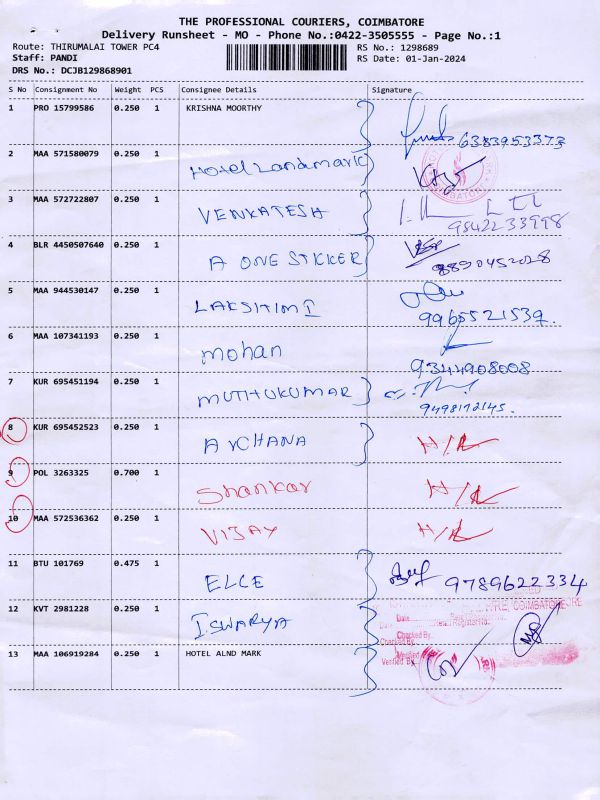 THE PROFESSIONAL COURIERS, COIMBATORE
Delivery Runsheet - MO - Phone No.:0422-3505555 - Page No.:1
Route: THIRUMALAI TOWER PC4 RS No.: 1298689
Staff: PANDI RS Date: 01-Jan-2024
DRS No.: DCJB129868901
S No Consignment No Weight PCS Consignee Details Signature
1 PRO 15799586 0.250 1 KRISHNA MOORTHY
6383953373
2 MAA 571580079 0.250 1 Hotel Landmark
3 MAA 572722807 0.250 1 VENKATESH
9842233998
4 BLR 4450507640 0.250 1 A ONE STICKER
8890452028
5 MAA 944530147 0.250 1 LAKSHIMI
9965521539.
6 MAA 107341193 0.250 1 mohan
9344908008
7 KUR 695451194 0.250 1 MUTHUKUMAR
9498172145.
8 KUR 695452523 0.250 1 ArCHANA
9 POL 3263325 0.700 1 Shankar
10 MAA 572536362 0.250 1 VIJAY
11 BTU 101769 0.475 1 ELCE 9789622334
12 KVT 2981228 0.250 1 ISWARYA
COIMBATORE
Date
Checked By
Verified By
13 MAA 106919284 0.250 1 HOTEL ALND MARK